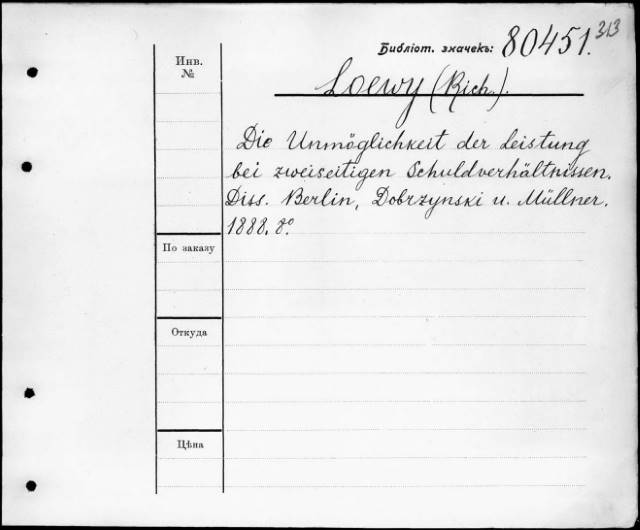 313
Библіот. значекъ: 80451.
Инв.
№
Loewy (Rich.).
Die Unmöglichkeit der Leistung
bei zweiseitigen Schuldverhältnissen.
Diss. Berlin, Dobrzynski u. Müllner.
1888. 8º.
По заказу
Откуда
Цѣна